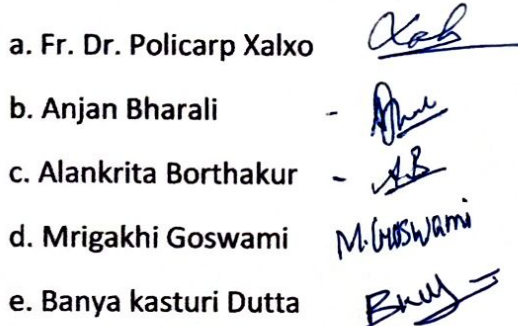 a. Fr. Dr. Policarp Xalxo
b. Anjan Bharali -
c. Alankrita Borthakur - AB
d. Mrigakhi Goswami M. Goswami
e. Banya kasturi Dutta